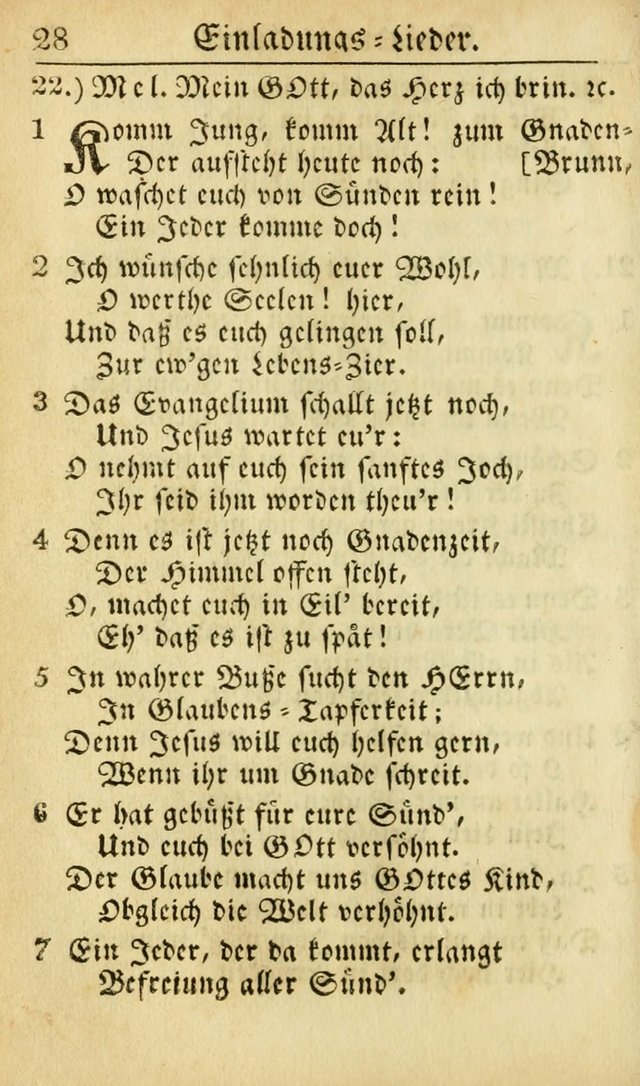 28 Einladungs-Lieder.
22.) Mel. Mein GOtt, das Herz ich brin. ꝛc.
1 Komm Jung, komm Alt! zum Gnaden-
Der aufsteht heute noch: [Brunn,
O waschet euch von Sünden rein!
Ein Jeder komme doch!
2 Ich wünsche sehnlich euer Wohl,
O werthe Seelen! hier,
Und daß es euch gelingen soll,
Zur ew'gen Lebens-Zier.
3 Das Evangelium schallt jetzt noch,
Und Jesus wartet eu'r:
O nehmt auf euch sein sanftes Joch,
Ihr seid ihm worden theu'r!
4 Denn es ist jetzt noch Gnadenzeit,
Der Himmel offen steht,
O, machet euch in Eil' bereit,
Eh' daß es ist zu spät!
5 In wahrer Buße sucht den HErrn,
In Glaubens-Tapferkeit;
Denn Jesus will euch helfen gern,
Wenn ihr um Gnade schreit.
6 Er hat gebüßt für eure Sünd',
Und euch bei GOtt versöhnt.
Der Glaube macht uns GOttes Kind,
Obgleich die Welt verhöhnt.
7 Ein Jeder, der da kommt, erlangt
Befreiung aller Sünd'.